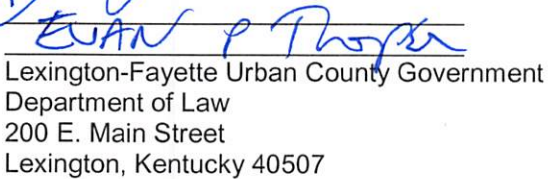 EVAN P Thompson
Lexington-Fayette Urban County Government
Department of Law
200 E. Main Street
Lexington, Kentucky 40507